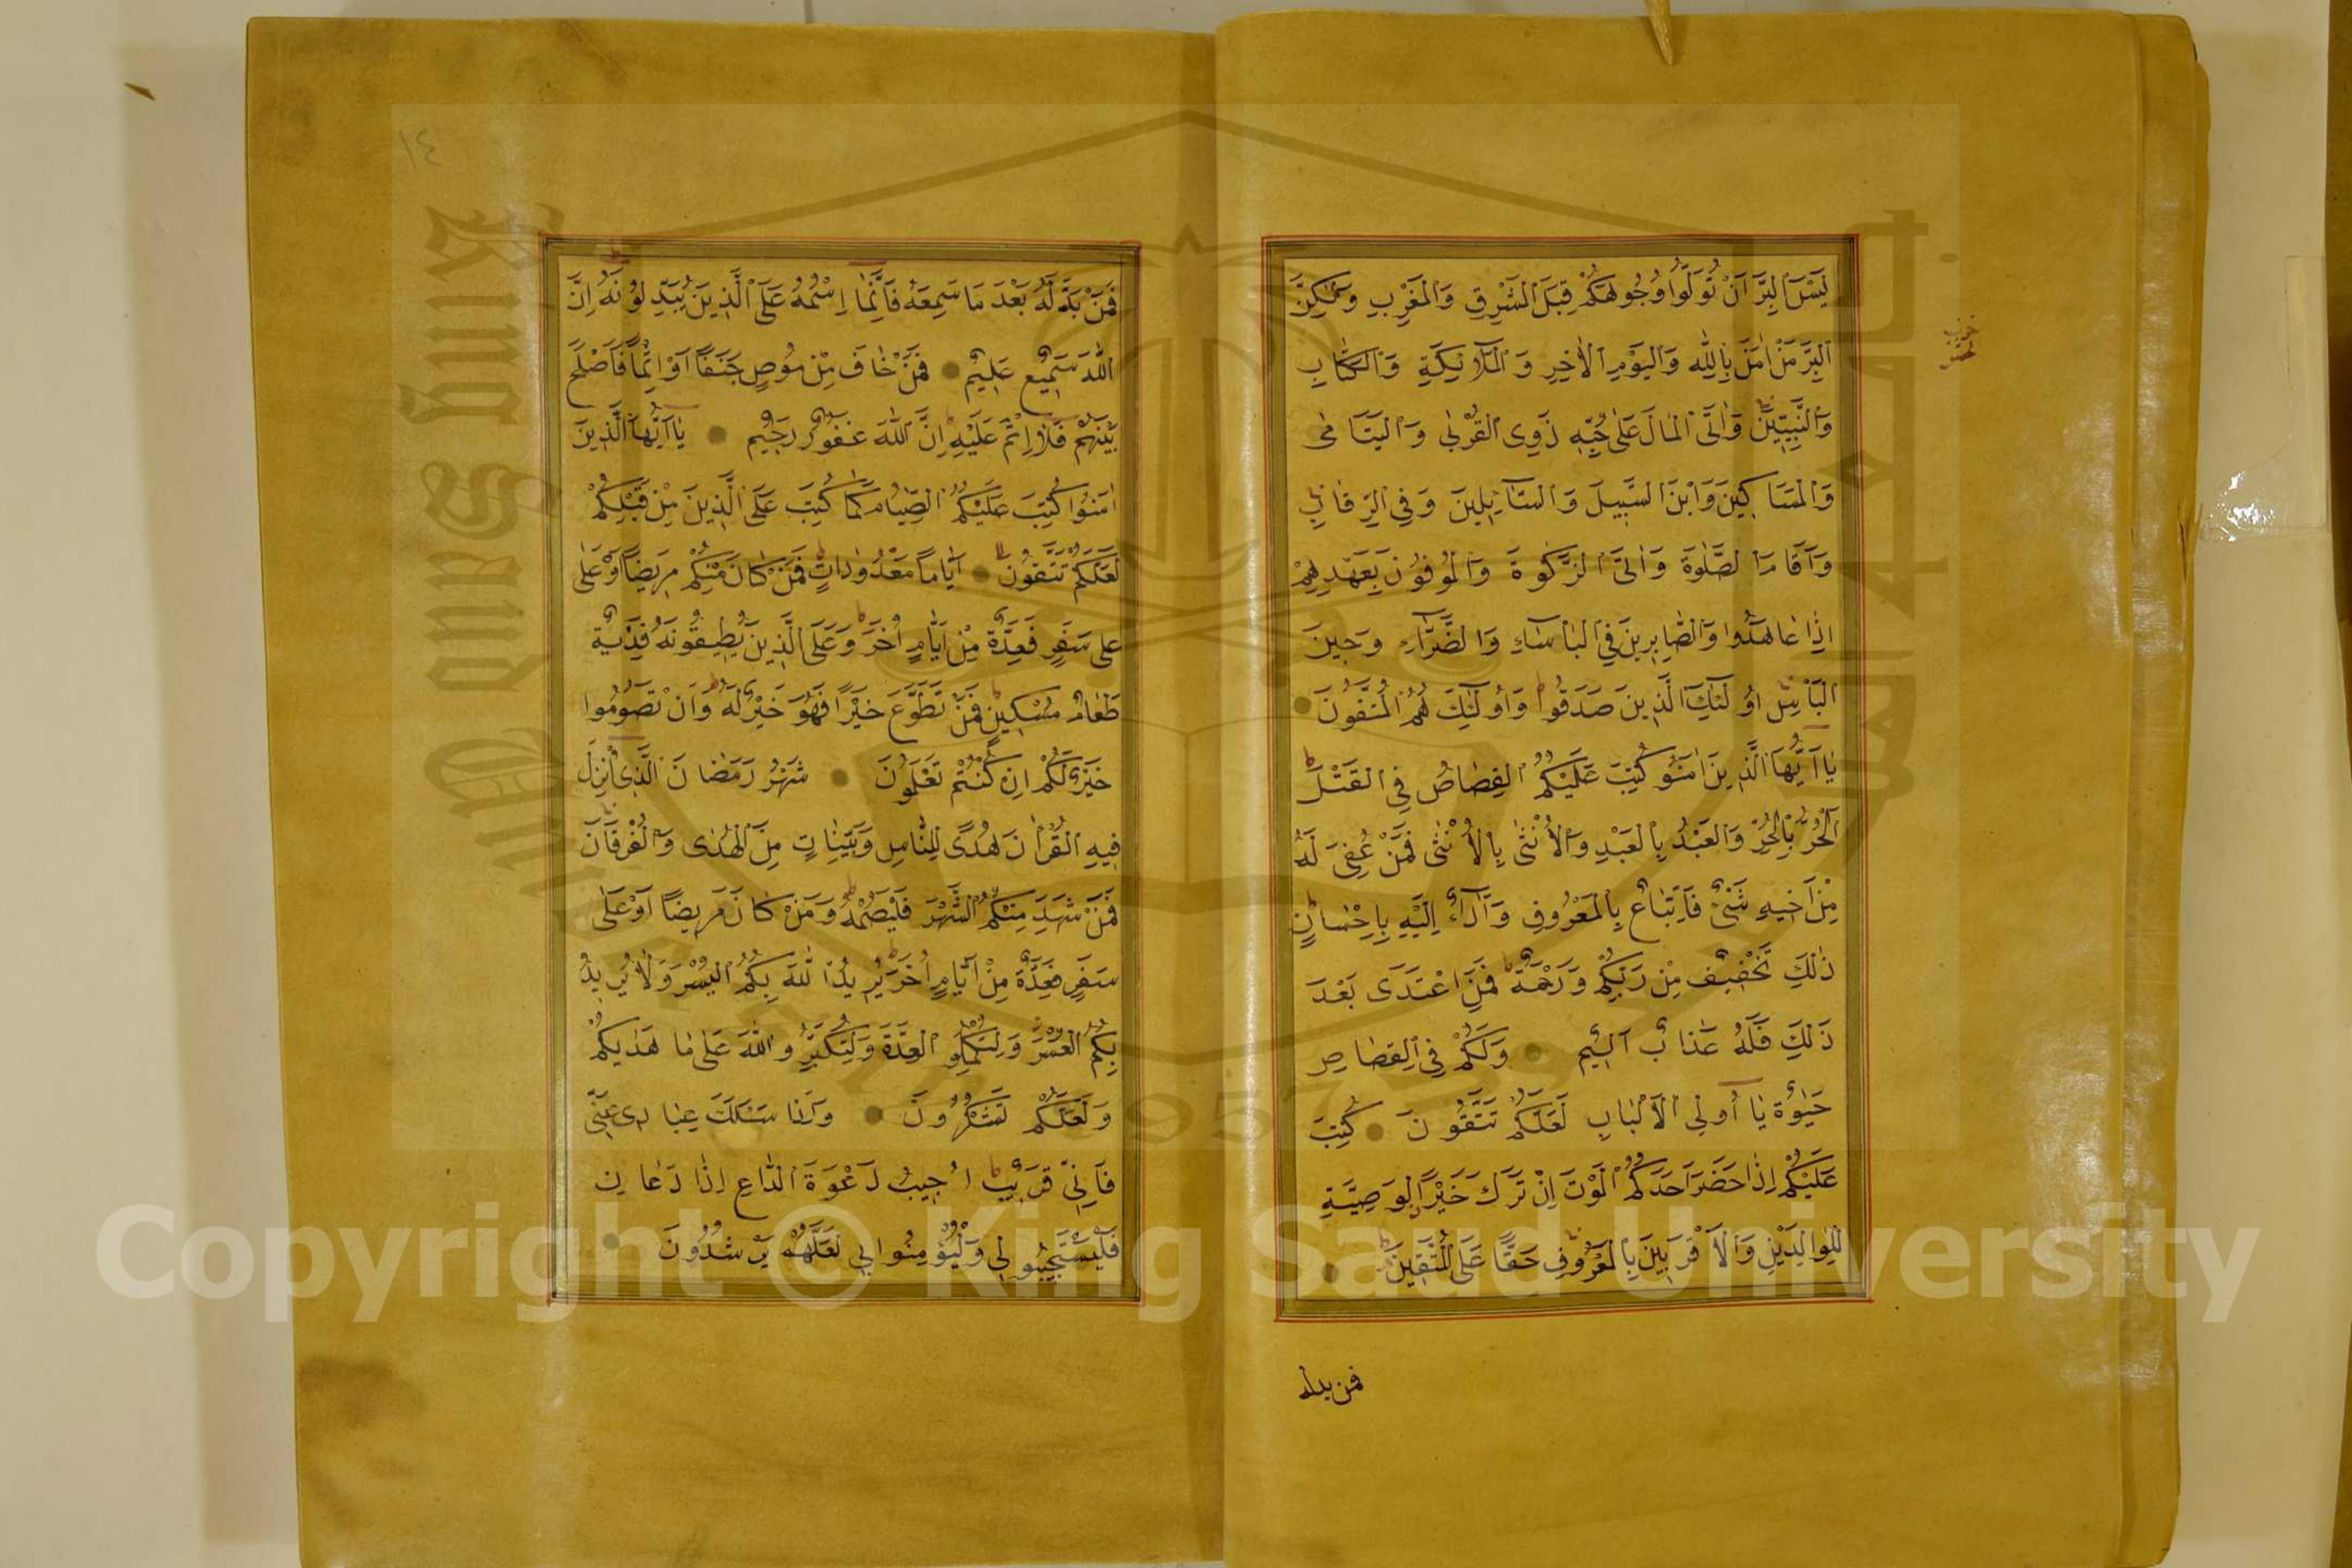 لَيْسَ الْبِرَّ اَنْ تُوَلُّوا وُجُوهَكُمْ قِبَلَ الْمَشْرِقِ وَالْمَغْرِبِ وَلٰكِنَّ
الْبِرَّ مَنْ اٰمَنَ بِاللّٰهِ وَالْيَوْمِ الْاٰخِرِ وَالْمَلَآئِكَةِ وَالْكِتَابِ
وَالنَّبِيِّينَ وَاٰتَى الْمَالَ عَلٰى حُبِّهِ ذَوِى الْقُرْبٰى وَالْيَتَامٰى
وَالْمَسَاكِينَ وَابْنَ السَّبِيلَ وَالسَّآئِلِينَ وَفِى الرِّقَابِ
وَاَقَامَ الصَّلٰوةَ وَاٰتَى الزَّكٰوةَ وَالْمُوفُونَ بِعَهْدِهِمْ
اِذَا عَاهَدُوا وَالصَّابِرِينَ فِى الْبَأْسَاءِ وَالضَّرَّآءِ وَحِينَ
الْبَأْسِ اُولٰئِكَ الَّذِينَ صَدَقُوا وَاُولٰئِكَ هُمُ الْمُتَّقُونَ
يَا اَيُّهَا الَّذِينَ اٰمَنُو كُتِبَ عَلَيْكُمُ الْقِصَاصُ فِى الْقَتْلَى
اَلْحُرُّ بِالْحُرِّ وَالْعَبْدُ بِالْعَبْدِ وَالْاُنْثٰى بِالْاُنْثٰى فَمَنْ عُفِىَ لَهُ
مِنْ اَخِيهِ شَىْءٌ فَاتِّبَاعٌ بِالْمَعْرُوفِ وَاَدَآءٌ اِلَيْهِ بِاِحْسَانٍ
ذٰلِكَ تَخْفِيفٌ مِنْ رَبِّكُمْ وَرَحْمَةٌ فَمَنِ اعْتَدَى بَعْدَ
ذَلِكَ فَلَهُ عَذَابٌ اَلِيمٌ وَلَكُمْ فِى الْقِصَاصِ
حَيٰوةٌ يَا اُولِى الْاَلْبَابِ لَعَلَّكُمْ تَتَّقُونَ كُتِبَ
عَلَيْكُمْ اِذَا حَضَرَ اَحَدَكُمُ الْمَوْتَ اِنْ تَرَكَ خَيْرًا الْوَصِيَّةِ
لِلْوَالِدَيْنِ وَالْاَقْرَبِينَ بِالْمَعْرُوفِ حَقًّا عَلَى الْمُتَّقِينَ
فمن بدله
حزب
١٤
فَمَنْ بَدَّلَهُ بَعْدَ مَا سَمِعَهُ فَاِنَّمَا اِثْمُهُ عَلَى الَّذِينَ يُبَدِّلُونَهُ اِنَّ
اللّٰهَ سَمِيعٌ عَلِيمٌ فَمَنْ خَافَ مِنْ مُوصٍ جَنَفًا اَوْ اِثْمًا فَاَصْلَحَ
بَيْنَهُمْ فَلَا اِثْمَ عَلَيْهِ اِنَّ اللّٰهَ غَفُورٌ رَحِيمٌ يَا اَيُّهَا الَّذِينَ
اٰمَنُوا كُتِبَ عَلَيْكُمُ الصِّيَامُ كَمَا كُتِبَ عَلَى الَّذِينَ مِنْ قَبْلِكُمْ
لَعَلَّكُمْ تَتَّقُونَ اَيَّاماً مَعْدُودَاتٍ فَمَنْ كَانَ مِنْكُمْ مَرِيضًا اَوْ عَلٰى
على سَفَرٍ فَعِدَّةٌ مِنْ اَيَّامٍ اُخَرَ وَعَلَى الَّذِينَ يُطِيقُونَهُ فِدْيَةٌ
طَعَامُ مِسْكِينٍ فَمَنْ تَطَوَّعَ خَيْرًا فَهُوَ خَيْرٌ لَهُ وَاَنْ تَصُومُوا
خَيْرٌ لَكُمْ اِنْ كُنْتُمْ تَعْلَمُونَ شَهْرُ رَمَضَانَ الَّذِى اُنْزِلَ
فِيهِ الْقُرْاٰنَ هُدًى لِلنَّاسِ وَبَيِّنَاتٍ مِنَ الْهُدٰى وَالْفُرْقَانَ
فَمَنْ شَهِدَ مِنْكُمُ الشَّهْرَ فَلْيَصُمْهُ وَمَنْ كَانَ مَرِيضًا اَوْ عَلَى
سَفَرٍ فَعِدَّةٌ مِنْ اَيَّامٍ اُخَرَ يُرِيدُ اللّٰهَ بِكُمُ الْيُسْرَ وَلَا يُرِيدُ
بِكُمُ الْعُسْرَ وَلِتُكْمِلُو الْعِدَّةَ وَلِتُكَبِّرُو اللّٰهَ عَلٰى مَا هَدٰيكُمْ
وَلَعَلَّكُمْ تَشْكُرُونَ وَاِذَا سَئَلَكَ عِبَادِى عَنِّى
فَاِنِّى قَرِيبٌ اُجِيبُ دَعْوَةَ الدَّاعِ اِذَا دَعَانِ
فَلْيَسْتَجِيبُو لِى وَلْيُؤْمِنُوا بِى لَعَلَّهُمْ يَرْشُدُونَ
King Saud University
1957
Copyright © King Saud University